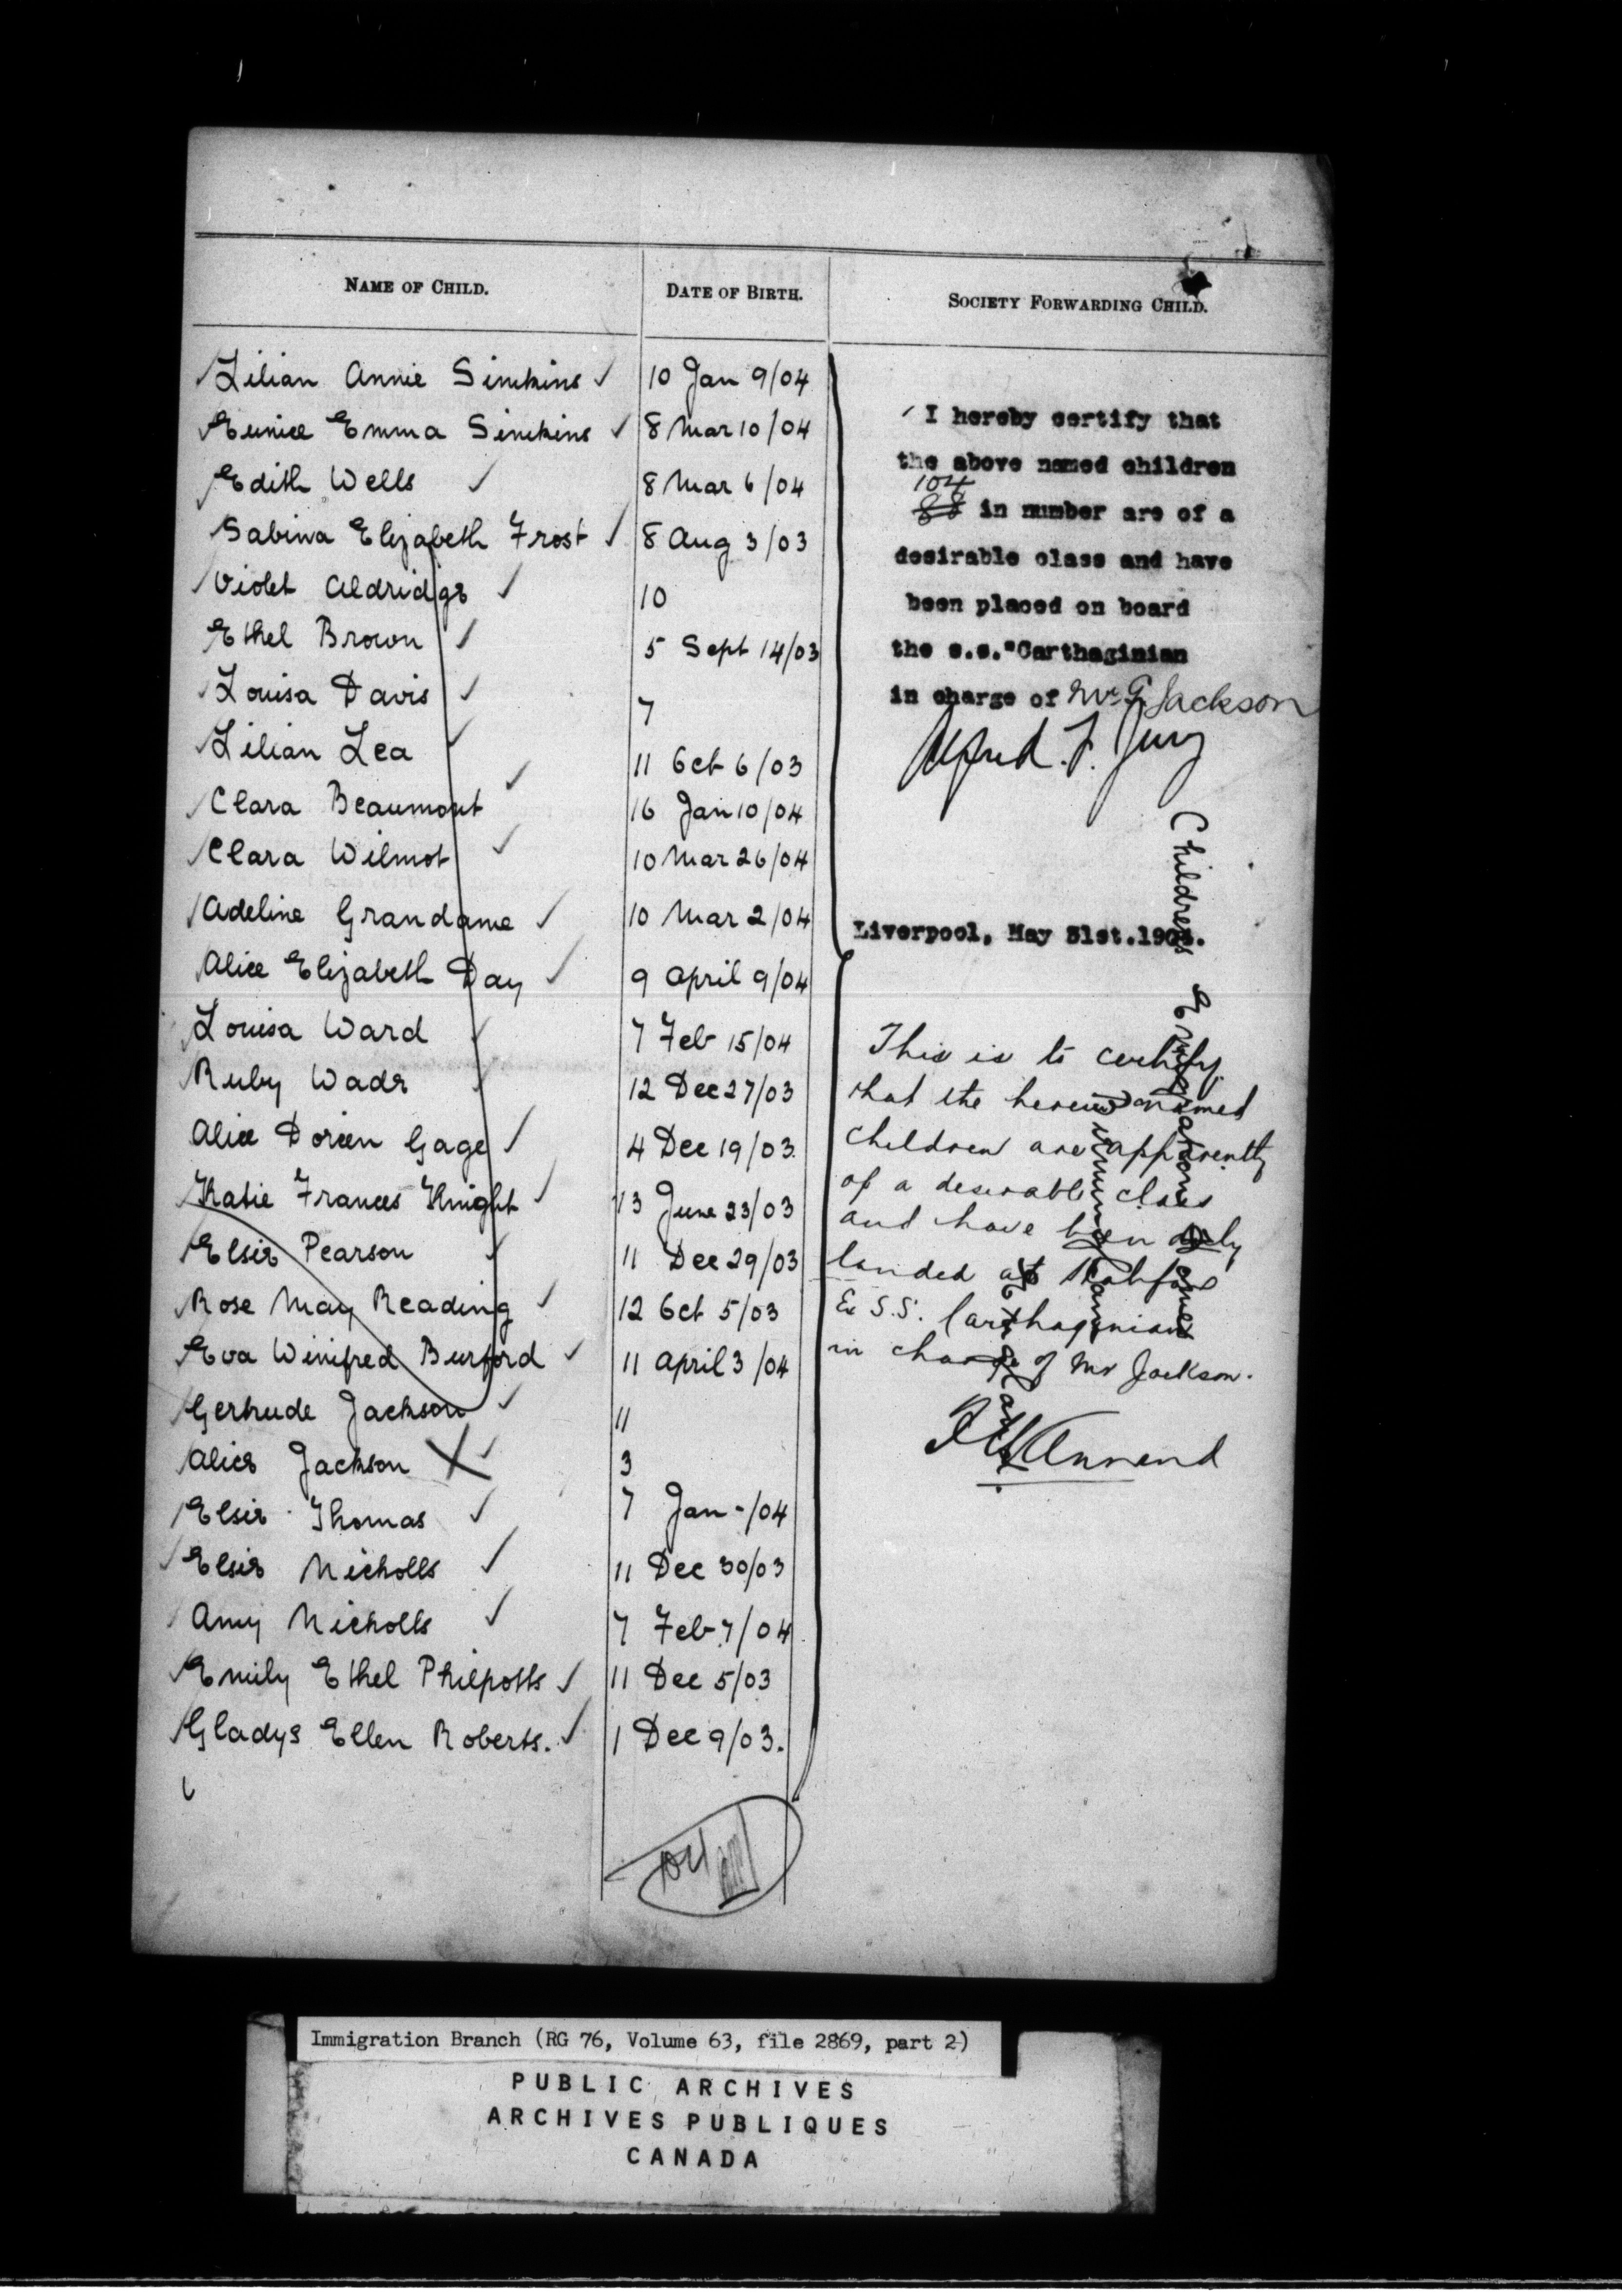 NAME OF CHILD. DATE OF BIRTH. SOCIETY FORWARDING CHILD.
Lilian Annie Simkins 10 Jan 9/04
Eunice Emma Simkins 8 Mar 10/04
Edith Wells 8 Mar 6/04
Sabina Elizabeth Frost 8 Aug 3/03
Violet Aldridge 10
Ethel Brown 5 Sept 14/03
Louisa Davis 7
Lilian Lea 11 Oct 6/03
Clara Beaumont 16 Jan 10/04
Clara Wilmot 10 Mar 26/04
Adeline Grandame 10 Mar 2/04
Alice Elizabeth Day 9 April 9/04
Louisa Ward 7 Feb 15/04
Ruby Wade 12 Dec 27/03
Alice Doreen Gage 4 Dec 19/03.
Katie Frances Knight 13 June 23/03
Elsie Pearson 11 Dec 29/03
Rose May Reading 12 Oct 5/03
Eva Winifred Burford 11 April 3/04
Gertrude Jackson 11
Alice Jackson X 3
Elsie Thomas 7 Jan -/04
Elsie Nicholls 11 Dec 30/03
Amy Nicholls 7 Feb 7/04
Emily Ethel Philpotts 11 Dec 5/03
Gladys Ellen Roberts. 1 Dec 9/03.
104
I hereby certify that
the above named children
104
88 in number are of a
desirable class and have
been placed on board
the s.s."Carthaginian
in charge of Mr G. Jackson
Alfred. F. Jury
Liverpool, May 31st.1904.
Childrens Emigration Homes
This is to certify
that the herein named
children are apparently
of a desirable class
and have been duly
landed at Halifax
Ex S.S. Carthaginian
in charge of Mr Jackson.
Annand
Immigration Branch (RG 76, Volume 63, file 2869, part 2)
PUBLIC ARCHIVES
ARCHIVES PUBLIQUES
CANADA